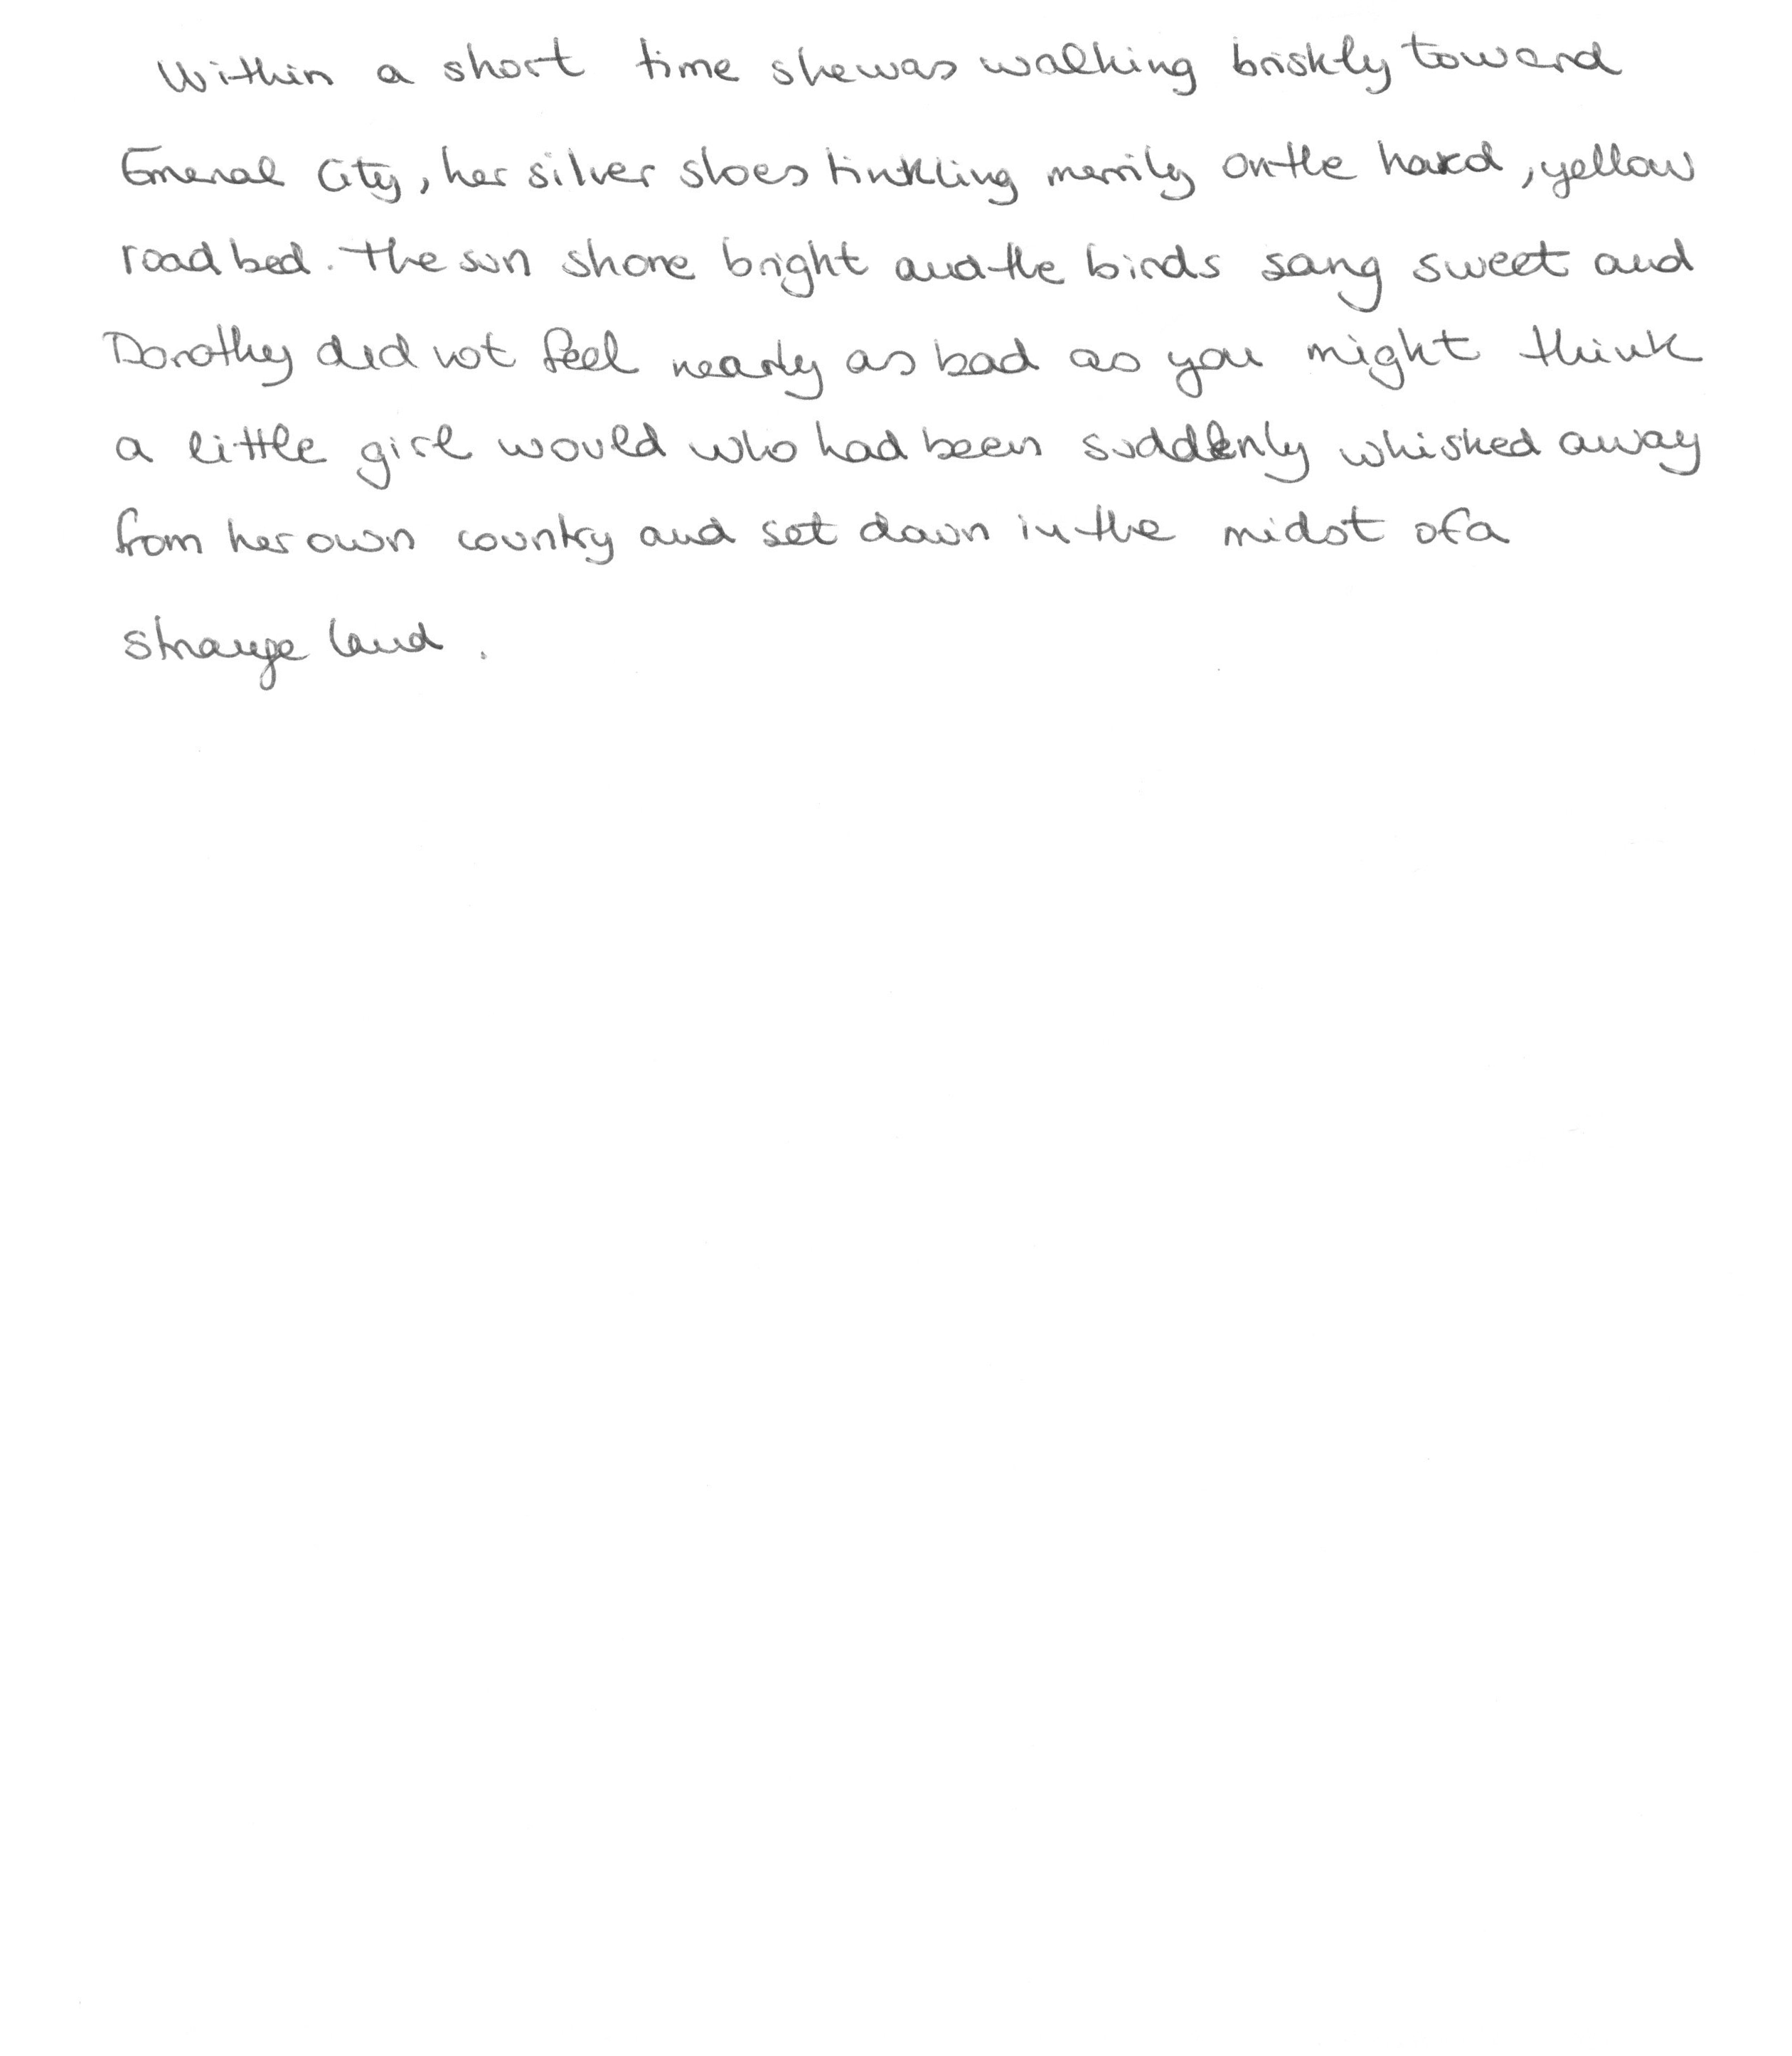 Within a short time she was walking briskly toward
Emeral City, her silver shoes tinkling merrily on the hard, yellow
road bed. The sun shone bright and the birds sang sweet and
Dorothy did not feel nearly as bad as you might think
a little girl would who had been suddenly whisked away
from her own country and set down in the midst of a
strange land.